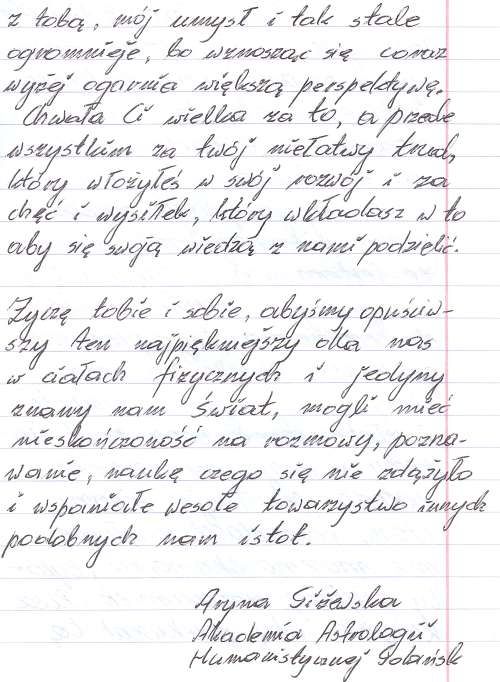 z tobą, mój umysł i tak stale
ogromnieje, bo wznosząc się coraz
wyżej ogarnia większą perspektywę.
Chwała Ci wielka za to, a przede
wszystkim za twój niełatwy trud,
który włożyłeś w swój rozwój i za
chęć i wysiłek, który wkładasz w to
aby się swoją wiedzą z nami podzielić.
Życzę tobie i sobie, abyśmy opuściw-
szy ten najpiękniejszy dla nas
w ciałach fizycznych i jedyny
znany nam świat, mogli mieć
nieskończoność na rozmowy, pozna-
wanie, naukę czego się nie zdążyło
i wspaniałe wesołe towarzystwo innych
podobnych nam istot.
Giżewska
Akademia Astrologii
Humanistycznej Gdańsk